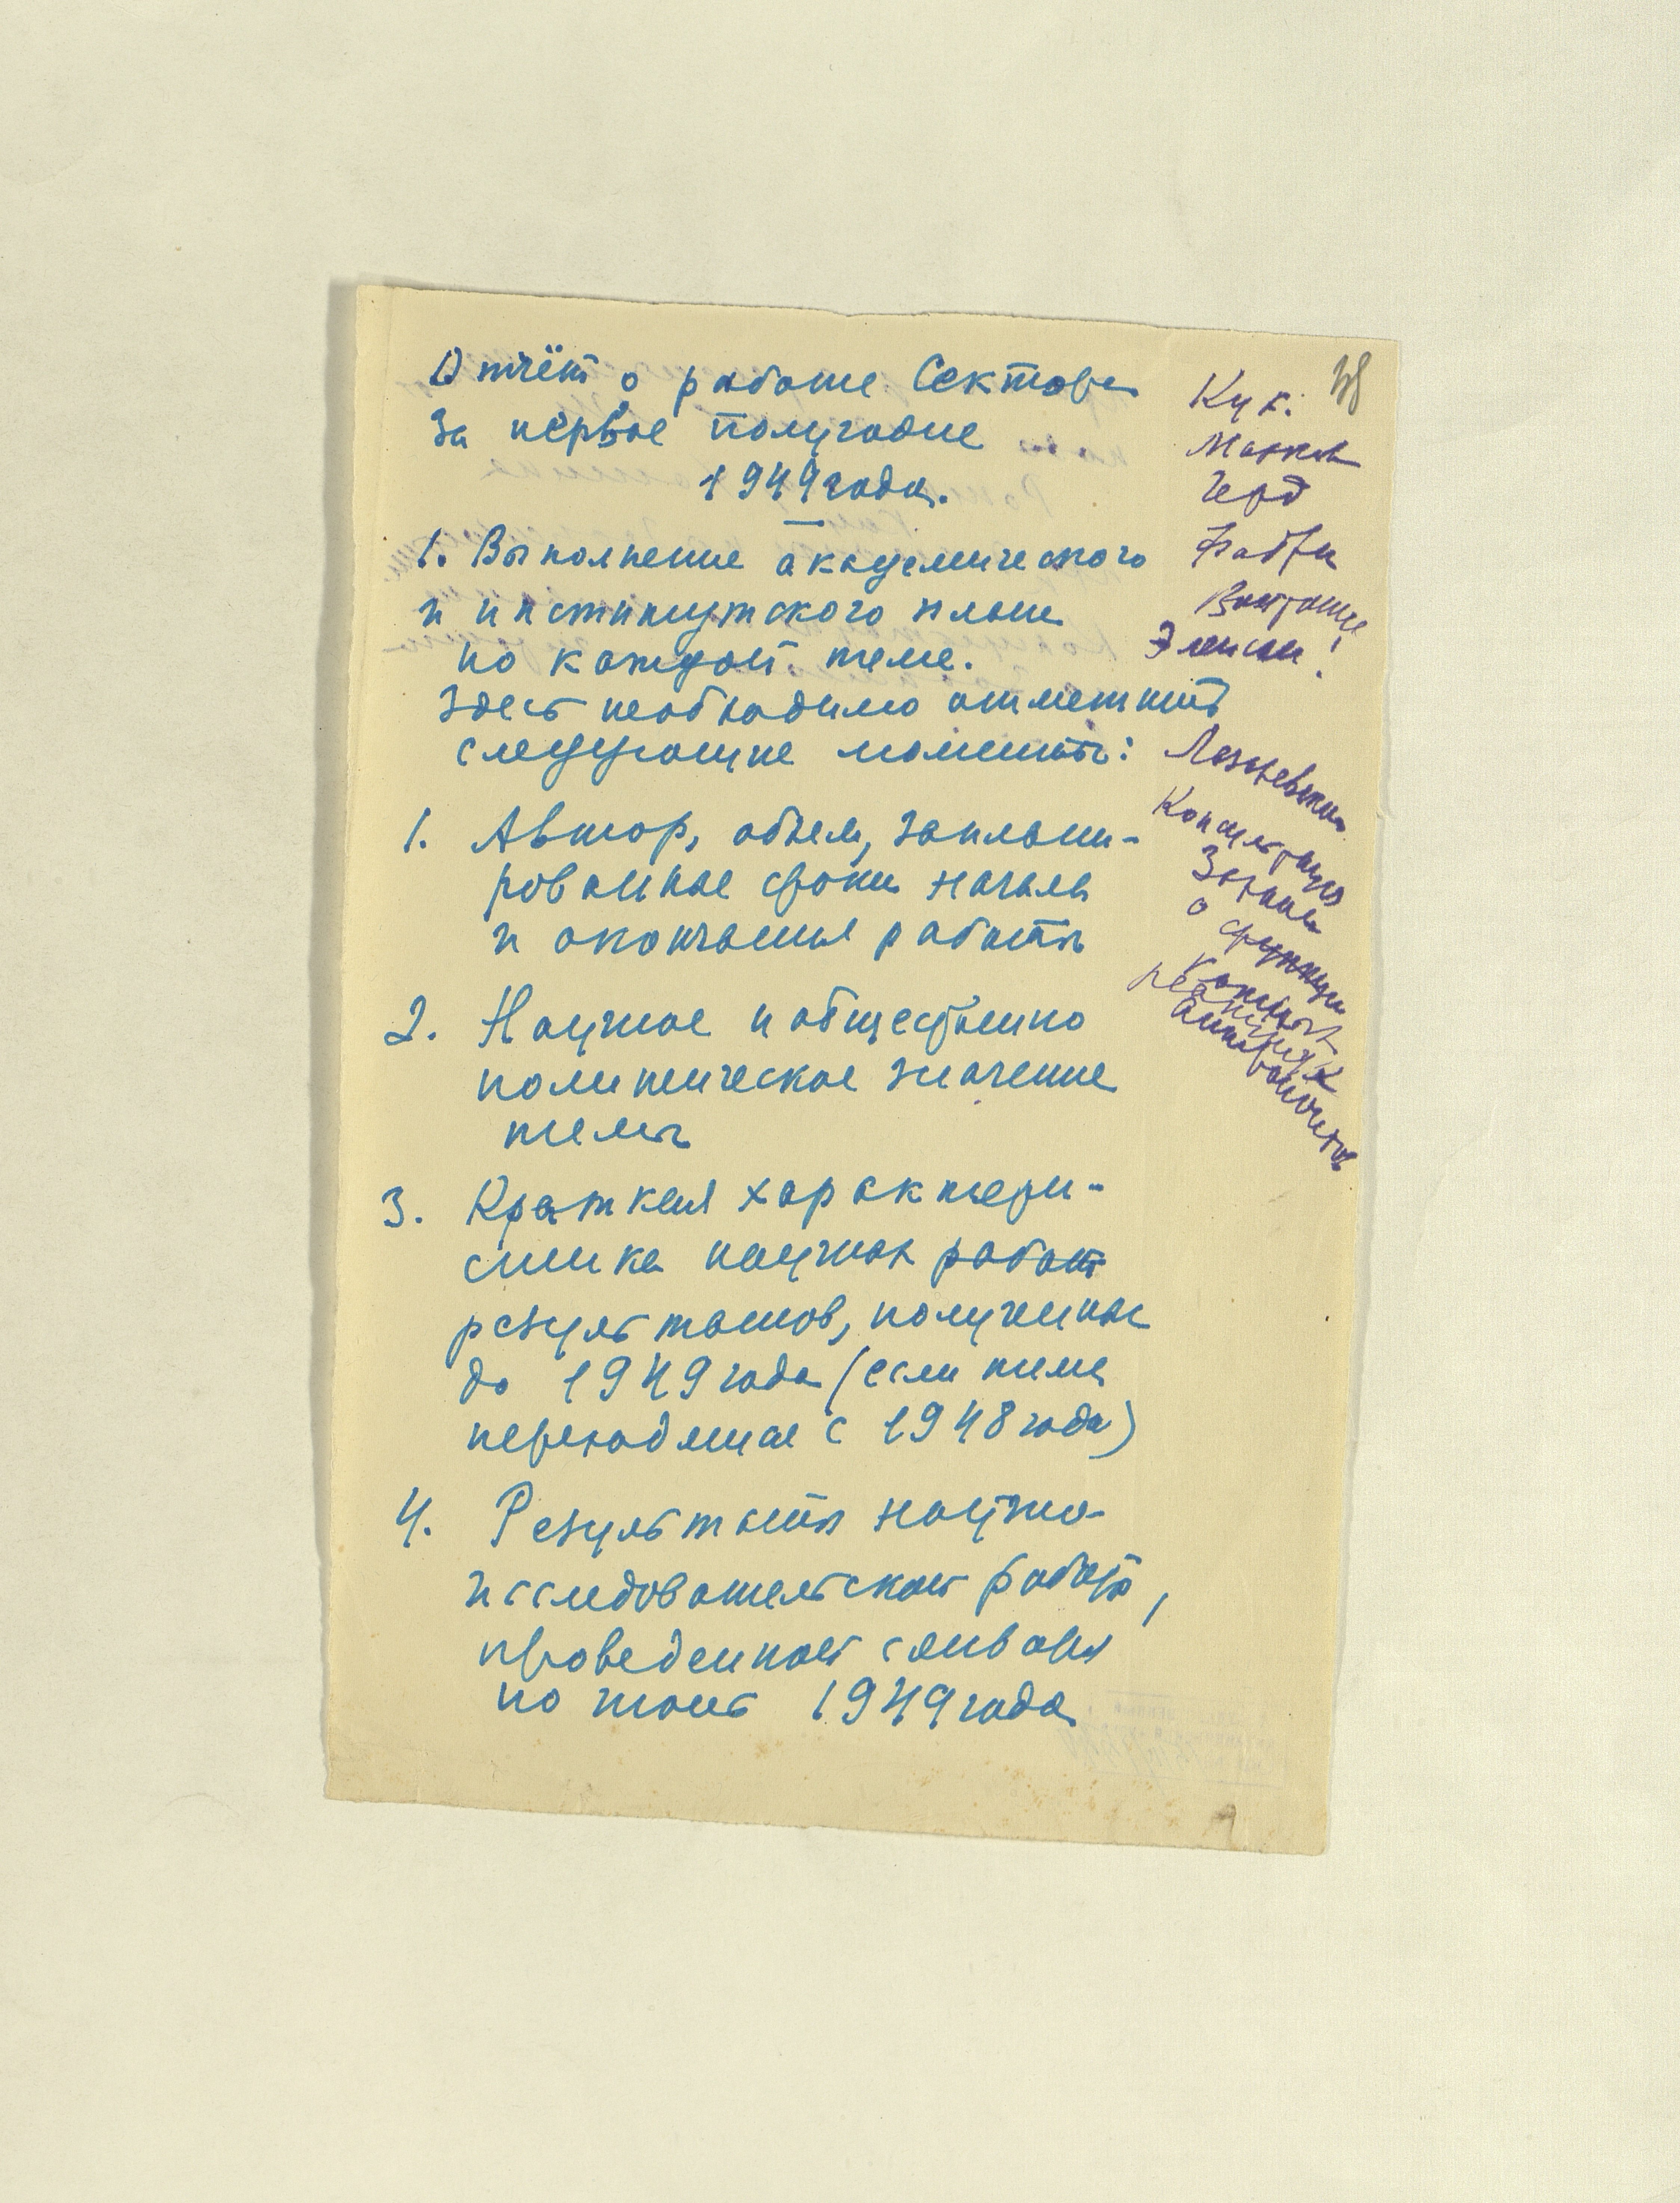 Отчёт о работе Сектора
за первое полугодие
1949 года.
1. Выполнение академического
и институтского плана
по каждой теме.
Здесь необходимо отметить
следующие моменты:
1. Автор, объем, заплани-
рованные сроки начала
и окончания работы
2. Научное и общественно
политическое значение
темы
3. Краткая характери-
стика научных работ
результатов, полученных
до 1949 года (если тема
переходящая с 1948 года)
4. Результаты научно-
исследовательской работы,
проведенной с января
по июнь 1949 года
Кук.
Марков
Герд
Фабри
Войтонис
Элисси!
Консультация
Зорина
о функции